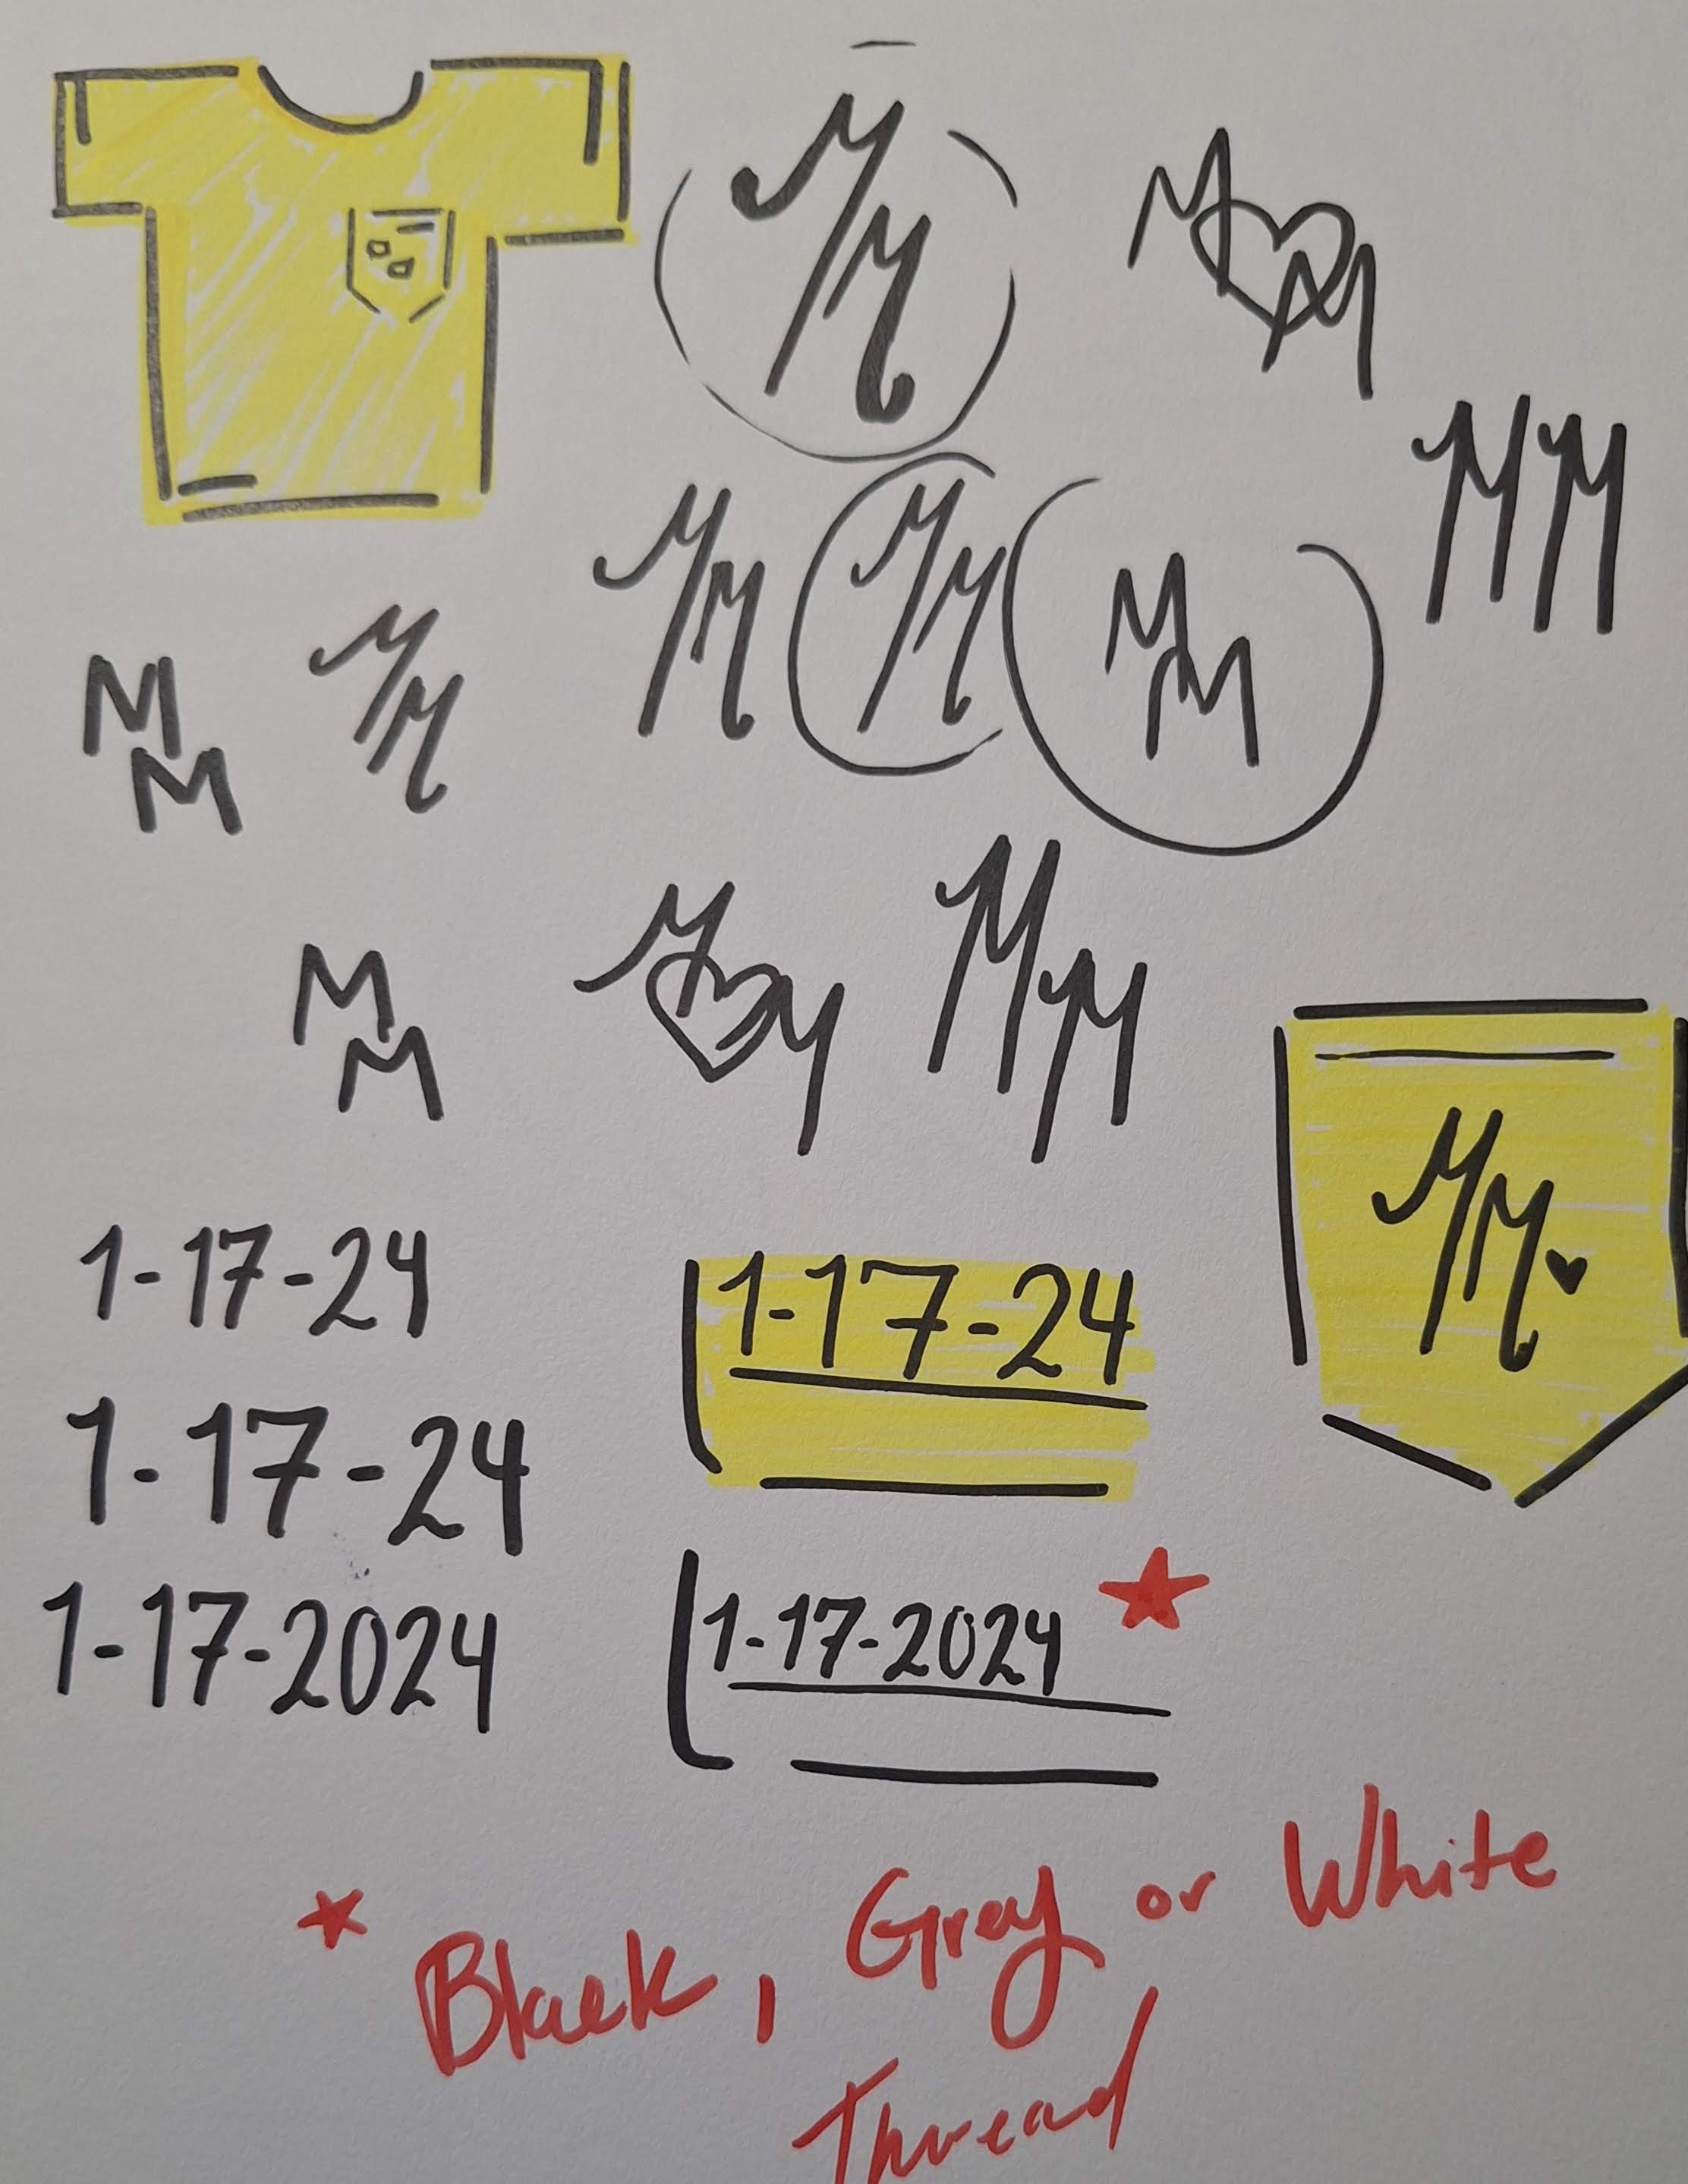 MM
M M
MM
MM
MM
MM
MM
MM
MM
M M
MM
MM
1-17-24
1-17-24
1-17-24
1-17-2024
1-17-2024
Black, Grey or White
Thread